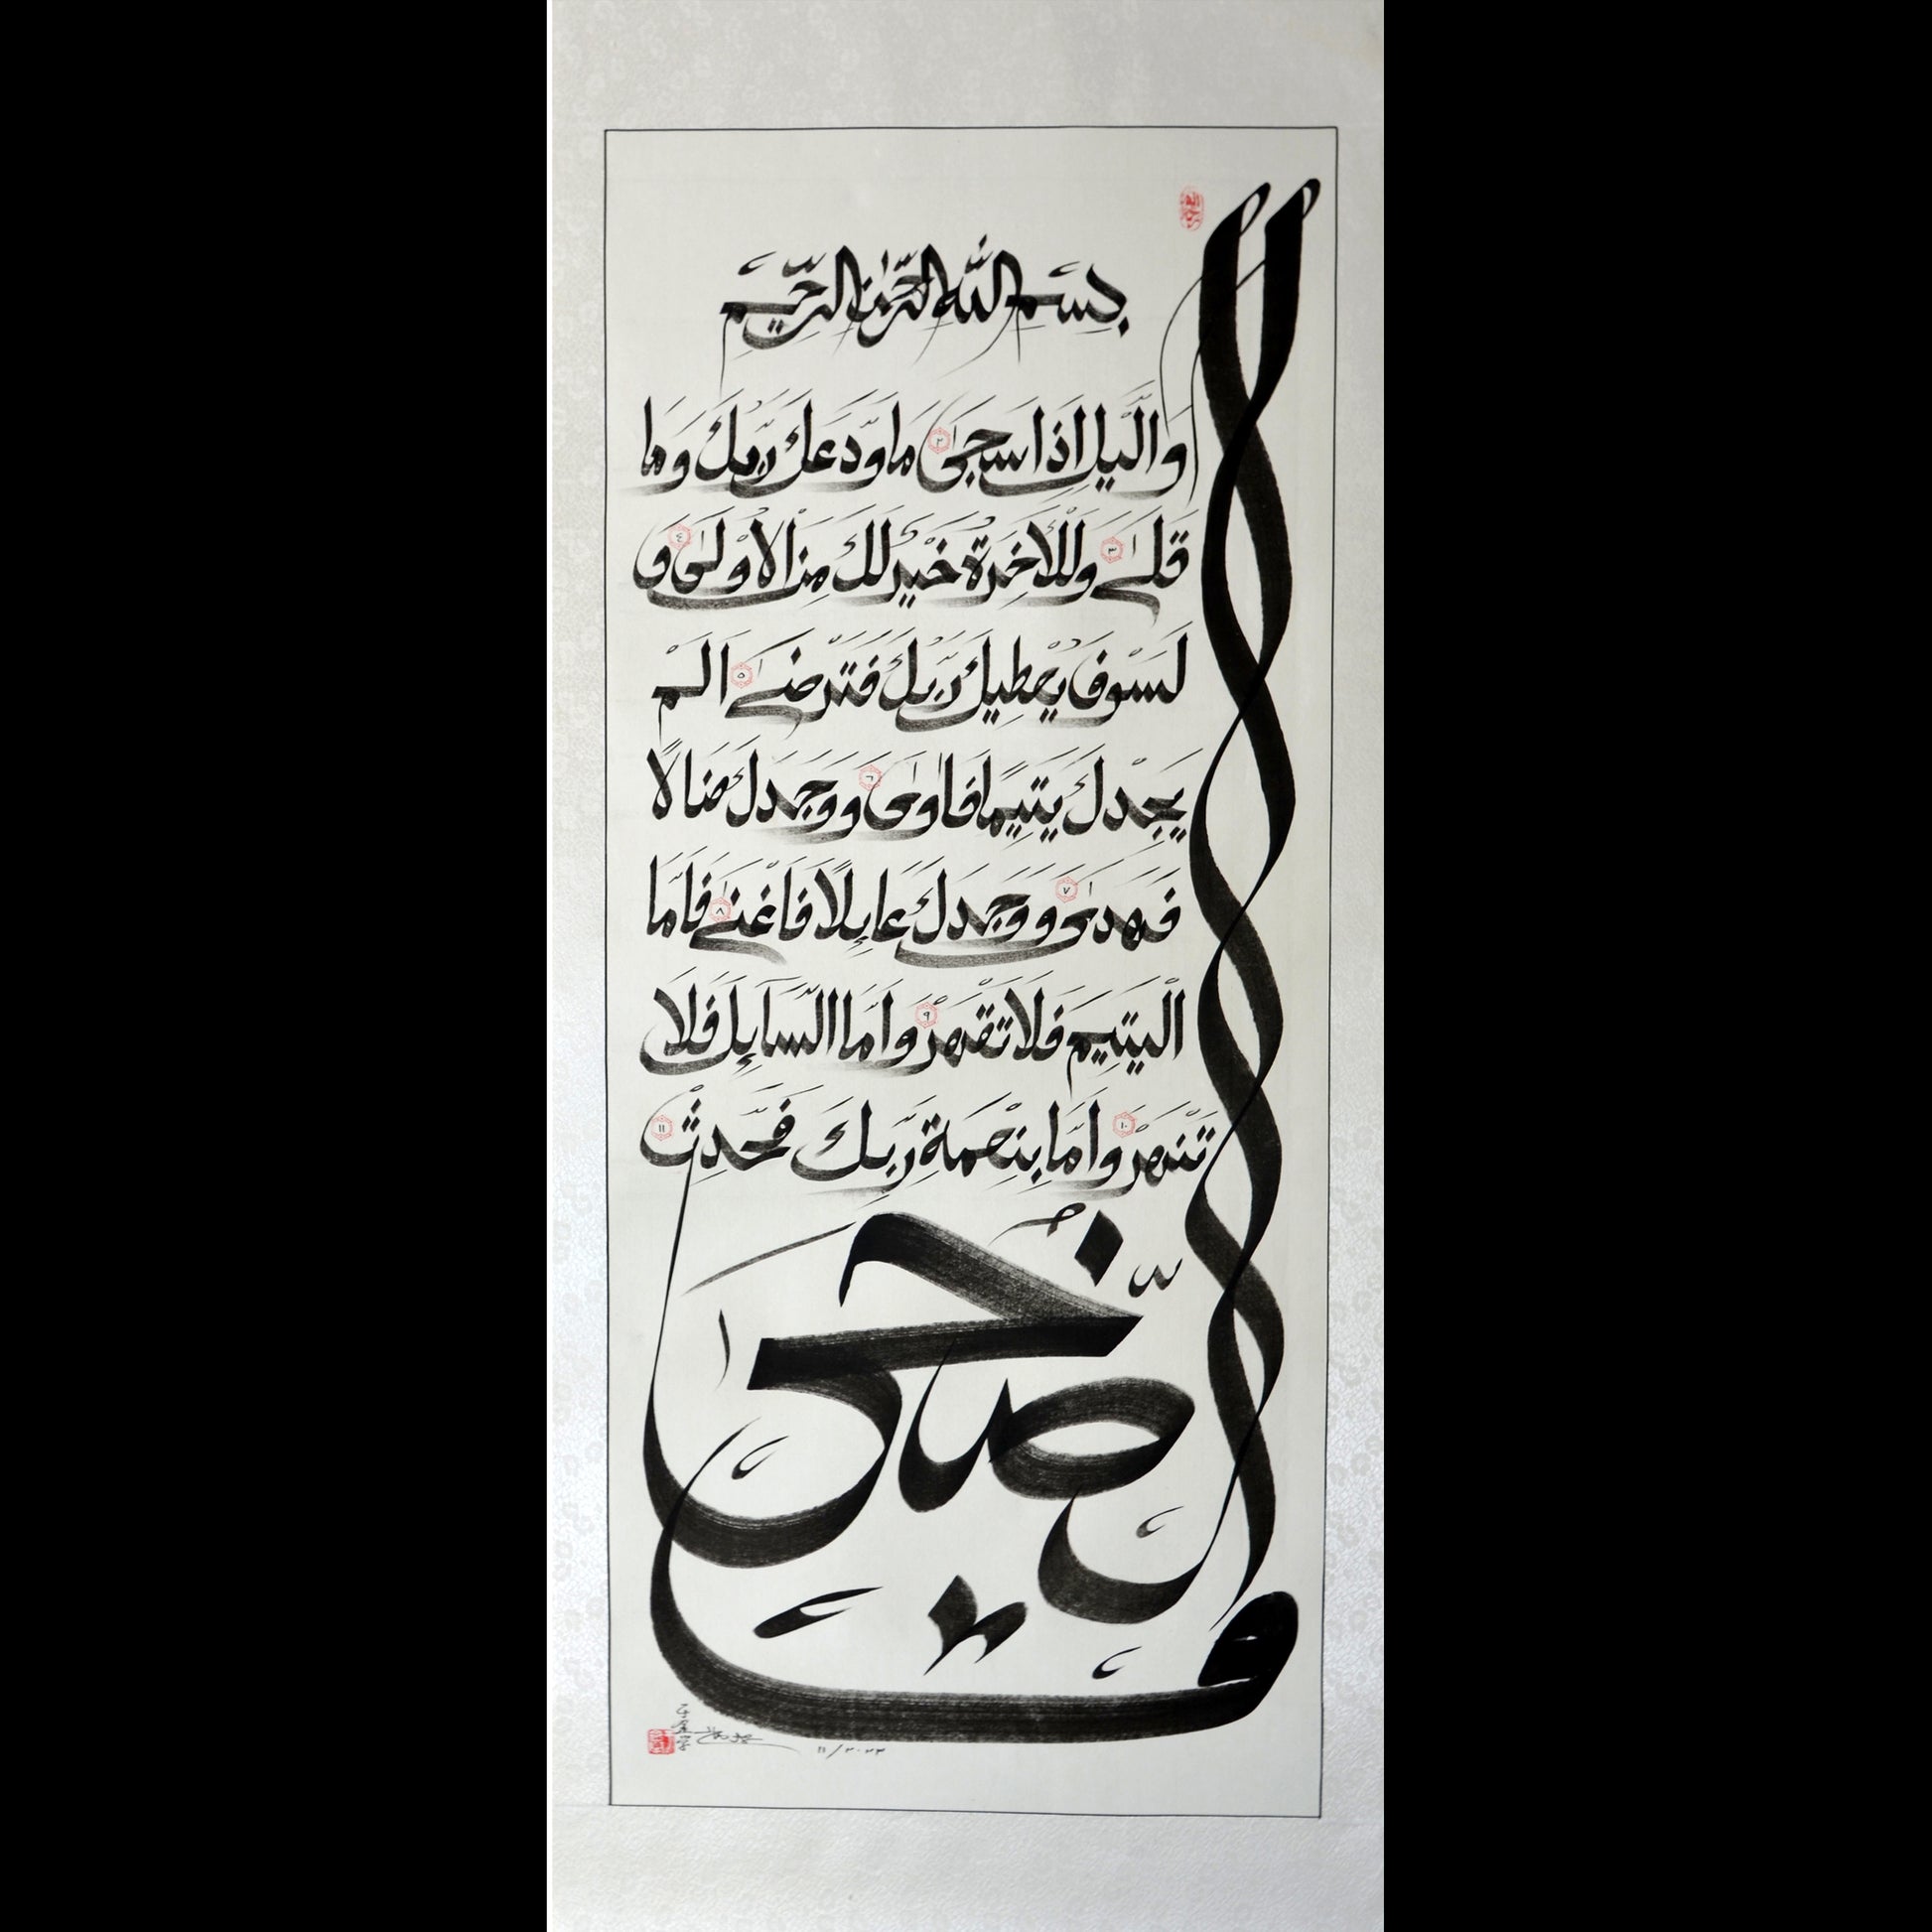 بِسْمِ اللّٰهِ الرَّحْمٰنِ الرَّحِيْمِ
وَالضُّحٰى
وَالَّيْلِ اِذَا سَجٰى ٢ مَا وَدَّعَكَ رَبُّكَ وَمَا
قَلٰى ٣ وَلَلْاٰخِرَةُ خَيْرٌ لَكَ مِنَ الْاُوْلٰى ٤ وَ
لَسَوْفَ يُعْطِيْكَ رَبُّكَ فَتَرْضٰى ٥ اَلَمْ
يَجِدْكَ يَتِيْمًا فَاٰوٰى ٦ وَوَجَدَكَ ضَالًّا
فَهَدٰى ٧ وَوَجَدَكَ عَايِلًا فَاَغْنٰى ٨ فَاَمَّا
الْيَتِيْمَ فَلَا تَقْهَرْ ٩ وَاَمَّا السَّآيِلَ فَلَا
تَنْهَرْ ١٠ وَاَمَّا بِنِعْمَةِ رَبِّكَ فَحَدِّثْ ١١
١١/٢٠٢٢